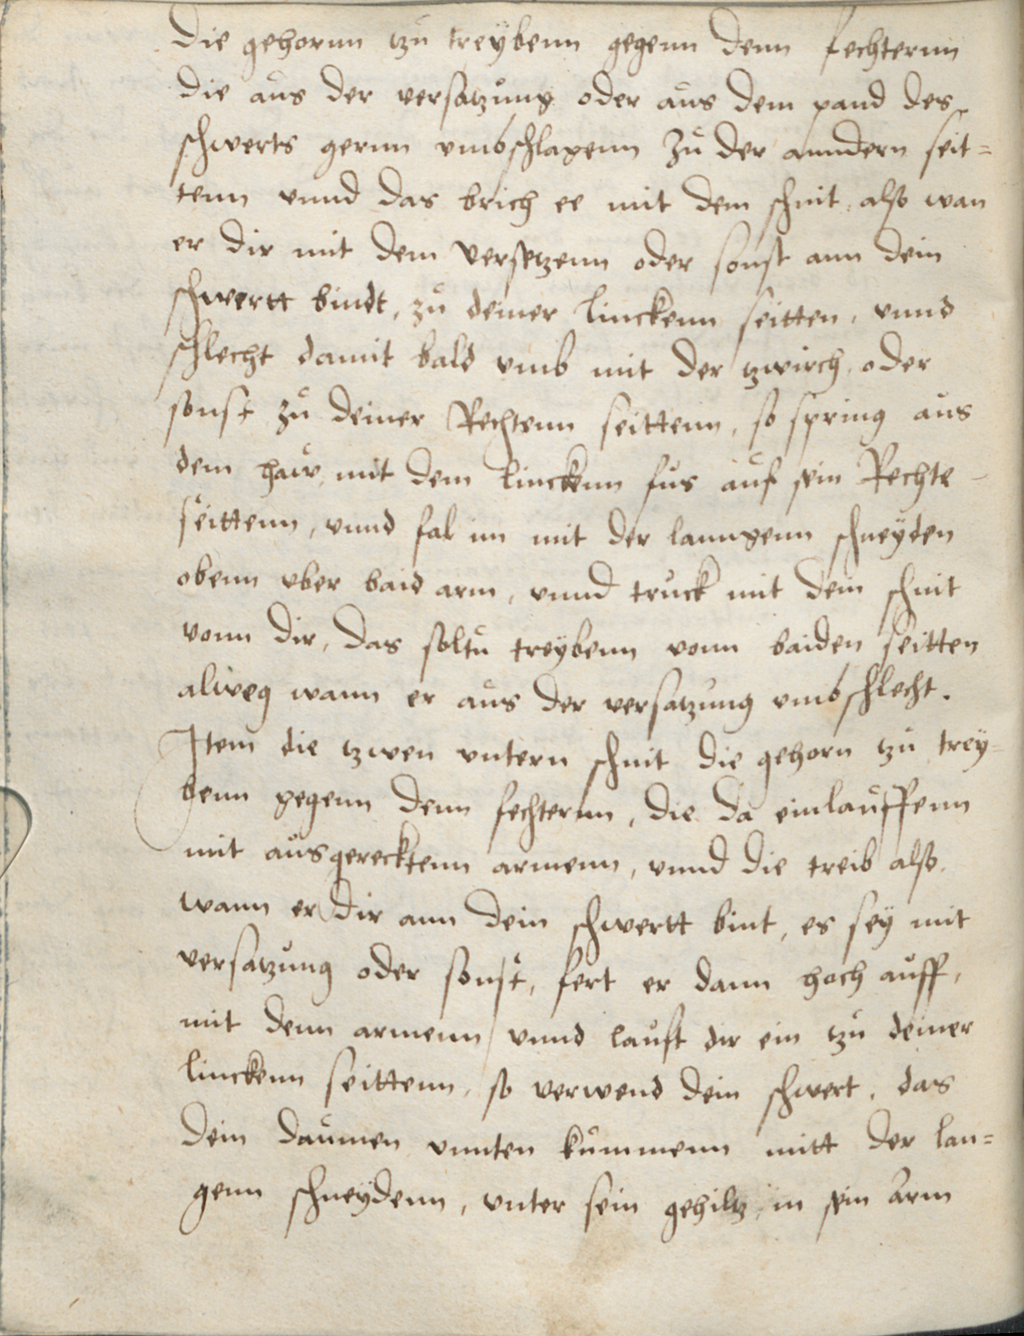 die gehornn tzů treÿbenn gegenn denn fechternn
die aůs der versatzůng oder aůs dem pand des
schwerts gernn vmbschlagenn zů der anndern seit=
tenn vnnd das brich ee mit dem schnit, also wan
er dir mit dem versetzenn oder sonst ann dein
schwertt bindt, zů deiner linckenn seitten, vnnd
schlecht damit bald vmb mit der tzwirch, oder
sonst zů deiner Rechtenn seittenn, so spring aůs
dem haw, mit dem linckenn fůs aůf sein Rechte
seittenn, vnnd fal im mit der lanngenn schneÿden
obenn vber baid arm, vnnd trůck mit dem schnit
vonn dir, das soltů treÿbenn vonn baiden seitten
alweg wann er aůs der versatzůng vmbschlecht.
Item die tzwen vntern schnit die gehorn tzů treÿ=
benn gegenn denn fechternn, die da einlaůffenn
mit aůsgerecktenn armenn, vnnd die treib also.
wann er dir ann dein schwertt bint, es seÿ mit
versatzůng oder sonst, fert er dann hoch aůff,
mit denn armenn vnnd laůft dir ein tzů deiner
linckenn seittenn, so verwend dein schwert, das
dein daůmen vnnten kůmmenn mitt der lan=
genn schneÿdenn, vnter sein gehiltz, in sein arm